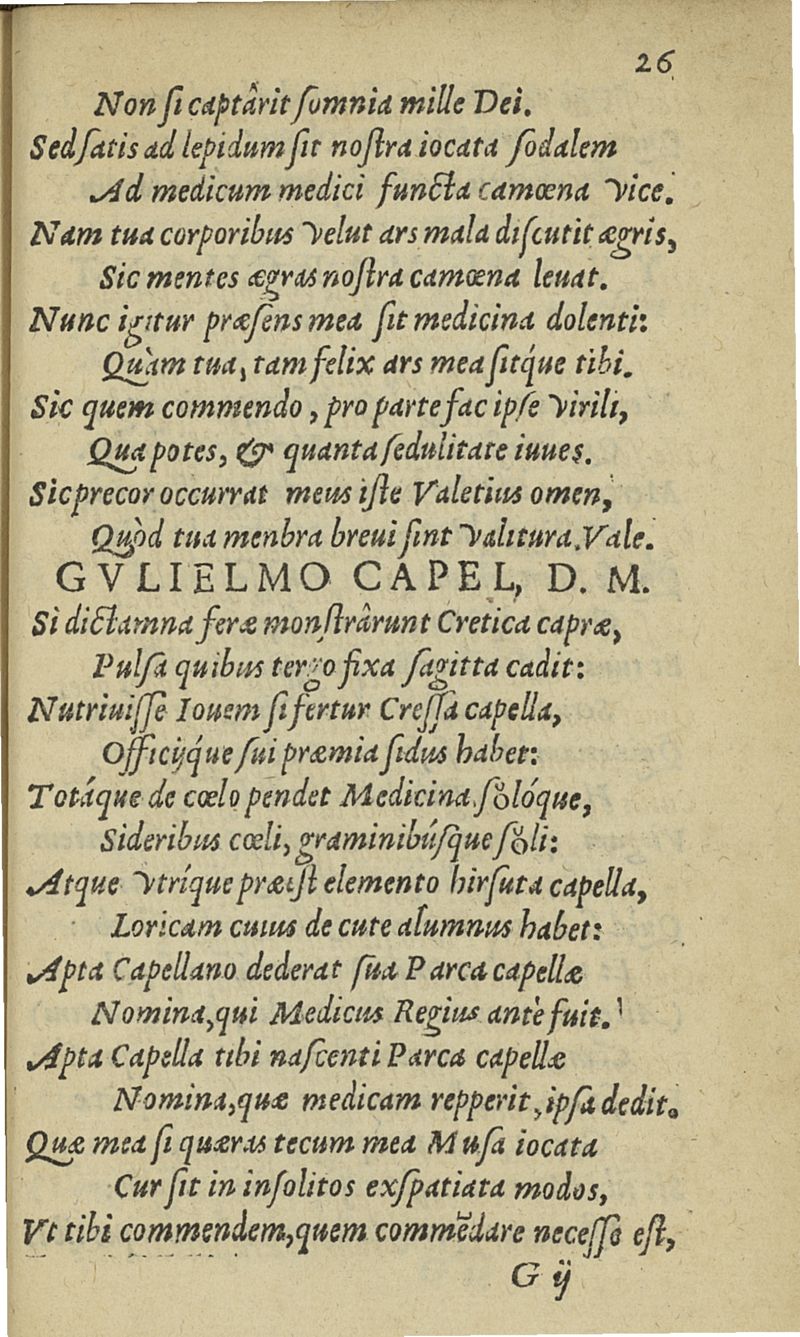 26
Non ſi captârit ſomnia mille Dei.
Sed ſatis ad lepidum ſit noſtra iocata ſodalem
Ad medicum medici functa camœna vice.
Nam tua corporibus velut ars mala diſcutit ægris,
Sic mentes ægras noſtra camœna leuat.
Nunc igitur præſens mea ſit medicina dolenti:
Quàm tua, tam felix ars mea ſitq́ue tibi.
Sic quem commendo, pro parte fac ipſe virili,
Qua potes, & quanta ſedulitate iuues.
Sic precor occurrat meus iſte Valetius omen,
Quòd tua menbra breui ſint valitura. Vale.
GVLIELMO CAPEL, D. M.
Si dictamna feræ monſtrârunt Cretica capræ,
Pulſa quibus tergo fixa ſagitta cadit:
Nutriuiſſe Iouem ſi fertur Creſſa capella,
Officijq́ue ſui præmia ſidus habet:
Totáque de cœlo pendet Medicina, ſolóque,
Sideribus cœli, graminibúſque ſoli:
Atque vtríque præeſt elemento hirſuta capella,
Loricam cuius de cute alumnus habet:
Apta Capellano dederat ſua Parca capellæ
Nomina, qui Medicus Regius antè fuit.
Apta Capella tibi naſcenti Parca capellæ
Nomina, quæ medicam repperit, ipſa dedit.
Quæ mea ſi quæras tecum mea Muſa iocata
Cur ſit in inſolitos exſpatiata modos,
Vt tibi commendem, quem commēdare neceſſe eſt,
G ij